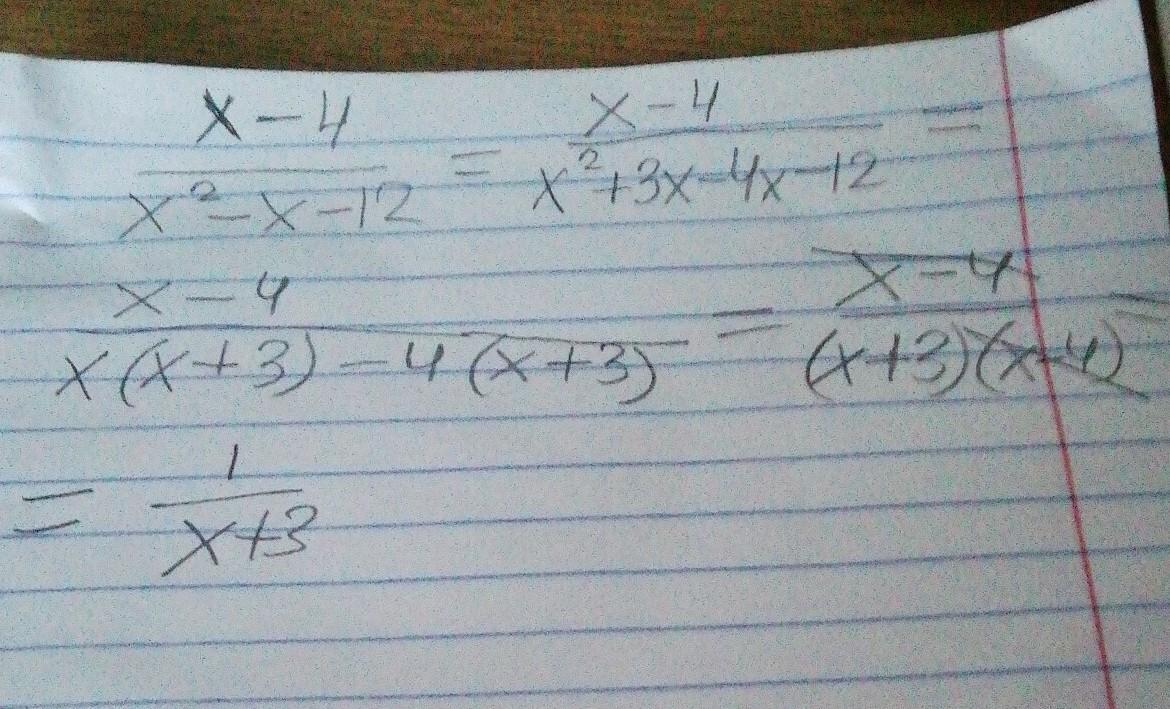 x-4/x²-x-12 = x-4/x²+3x-4x-12 =
x-4/x(x+3)-4(x+3) = x-4/(x+3)(x-4) =
= 1/x+3